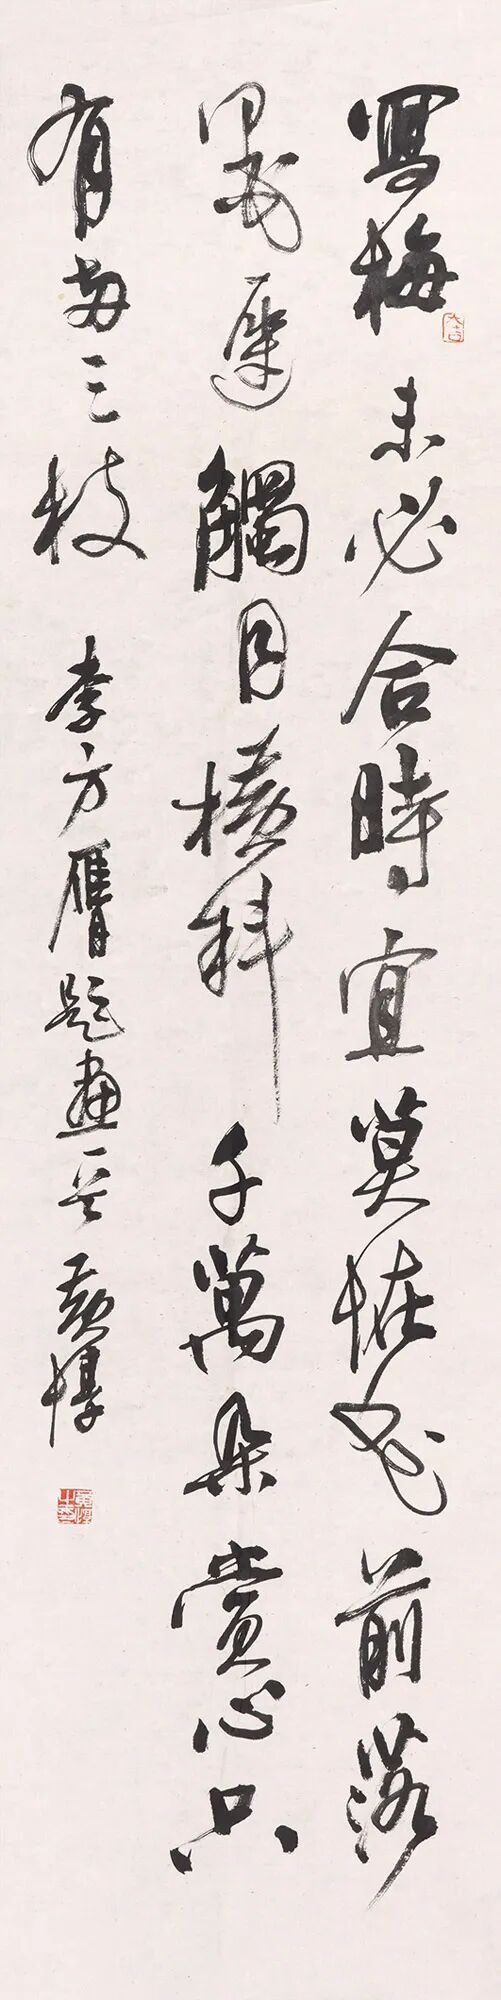 寫梅未必合時宜莫怪花前落
墨遲觸目橫斜千萬朵賞心只
有兩三枝
李方膺題畫 黃惇
大吉